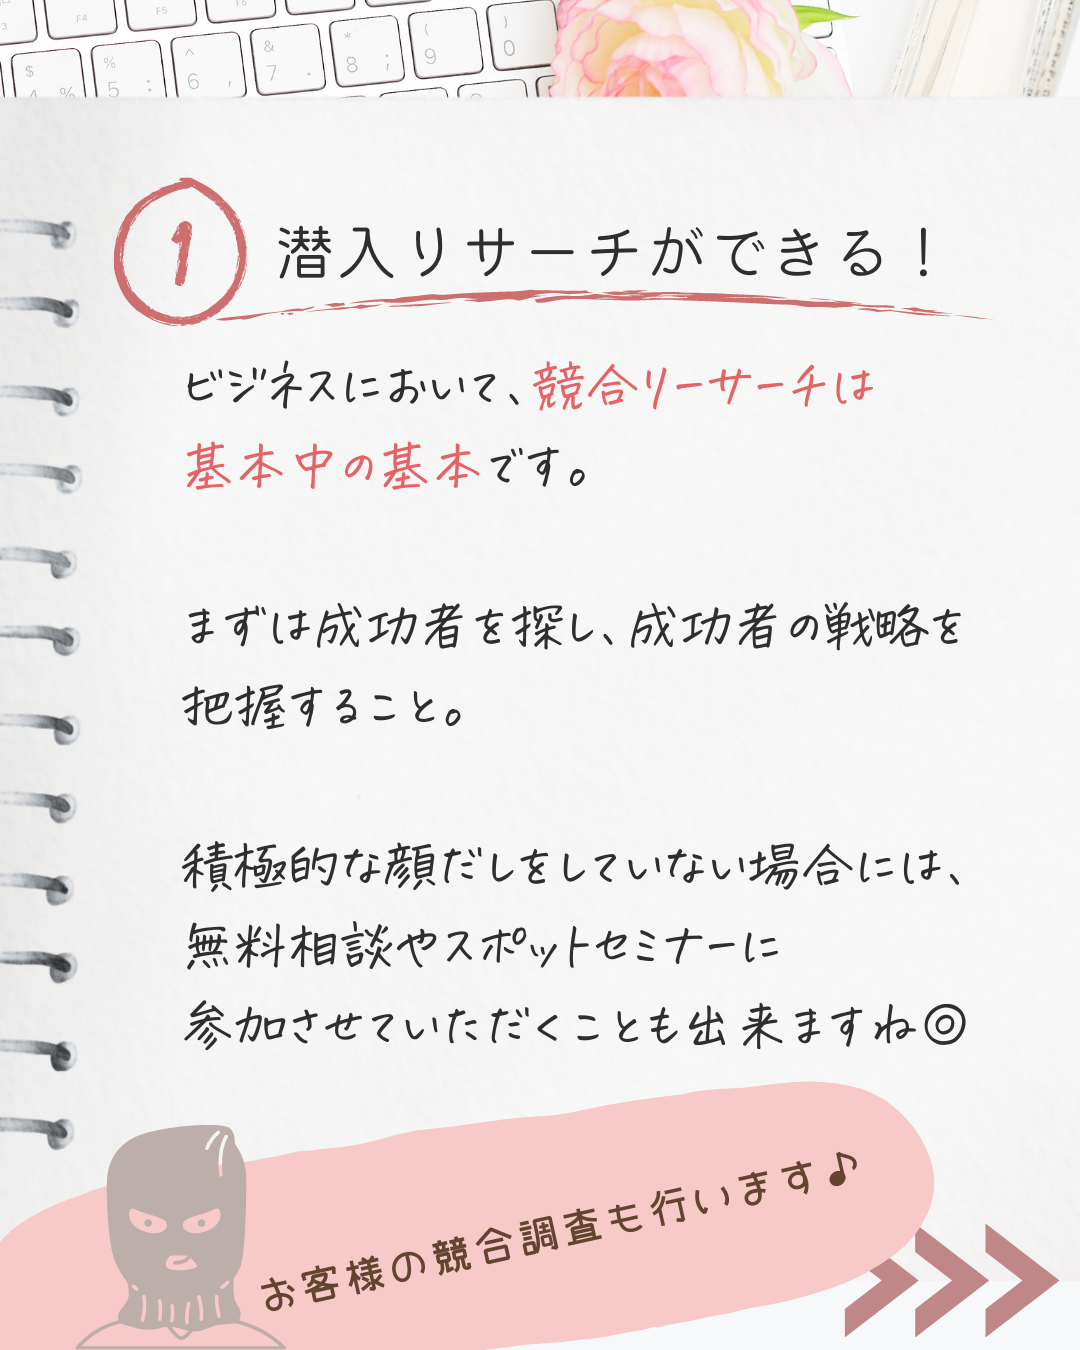 F4
F5
F6
$
4 %
%
5 :
^
6 ,
&
7 .
*
8 ;
(
9
)
0
1 潜入リサーチができる！
ビジネスにおいて、競合リーサーチは
基本中の基本です。
まずは成功者を探し、成功者の戦略を
把握すること。
積極的な顔だしをしていない場合には、
無料相談やスポットセミナーに
参加させていただくことも出来ますね◎
お客様の競合調査も行います♪